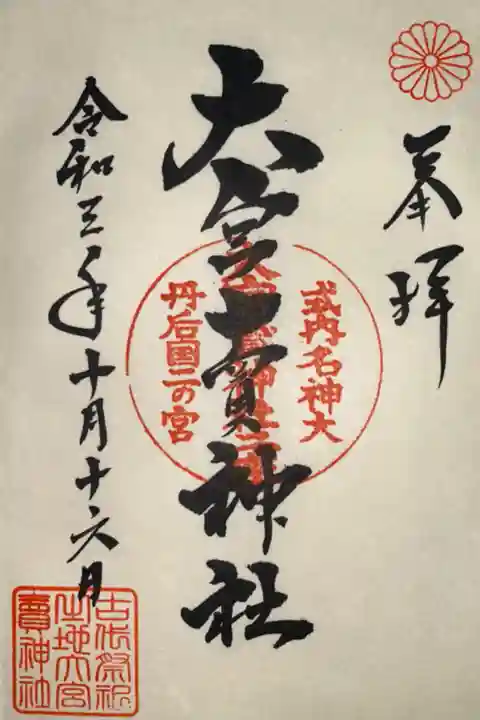 奉拝
式内名神大
大宮賣神社
丹后国二の宮
令和三年十月十六日
古代祭祀
之地大宮
賣神社